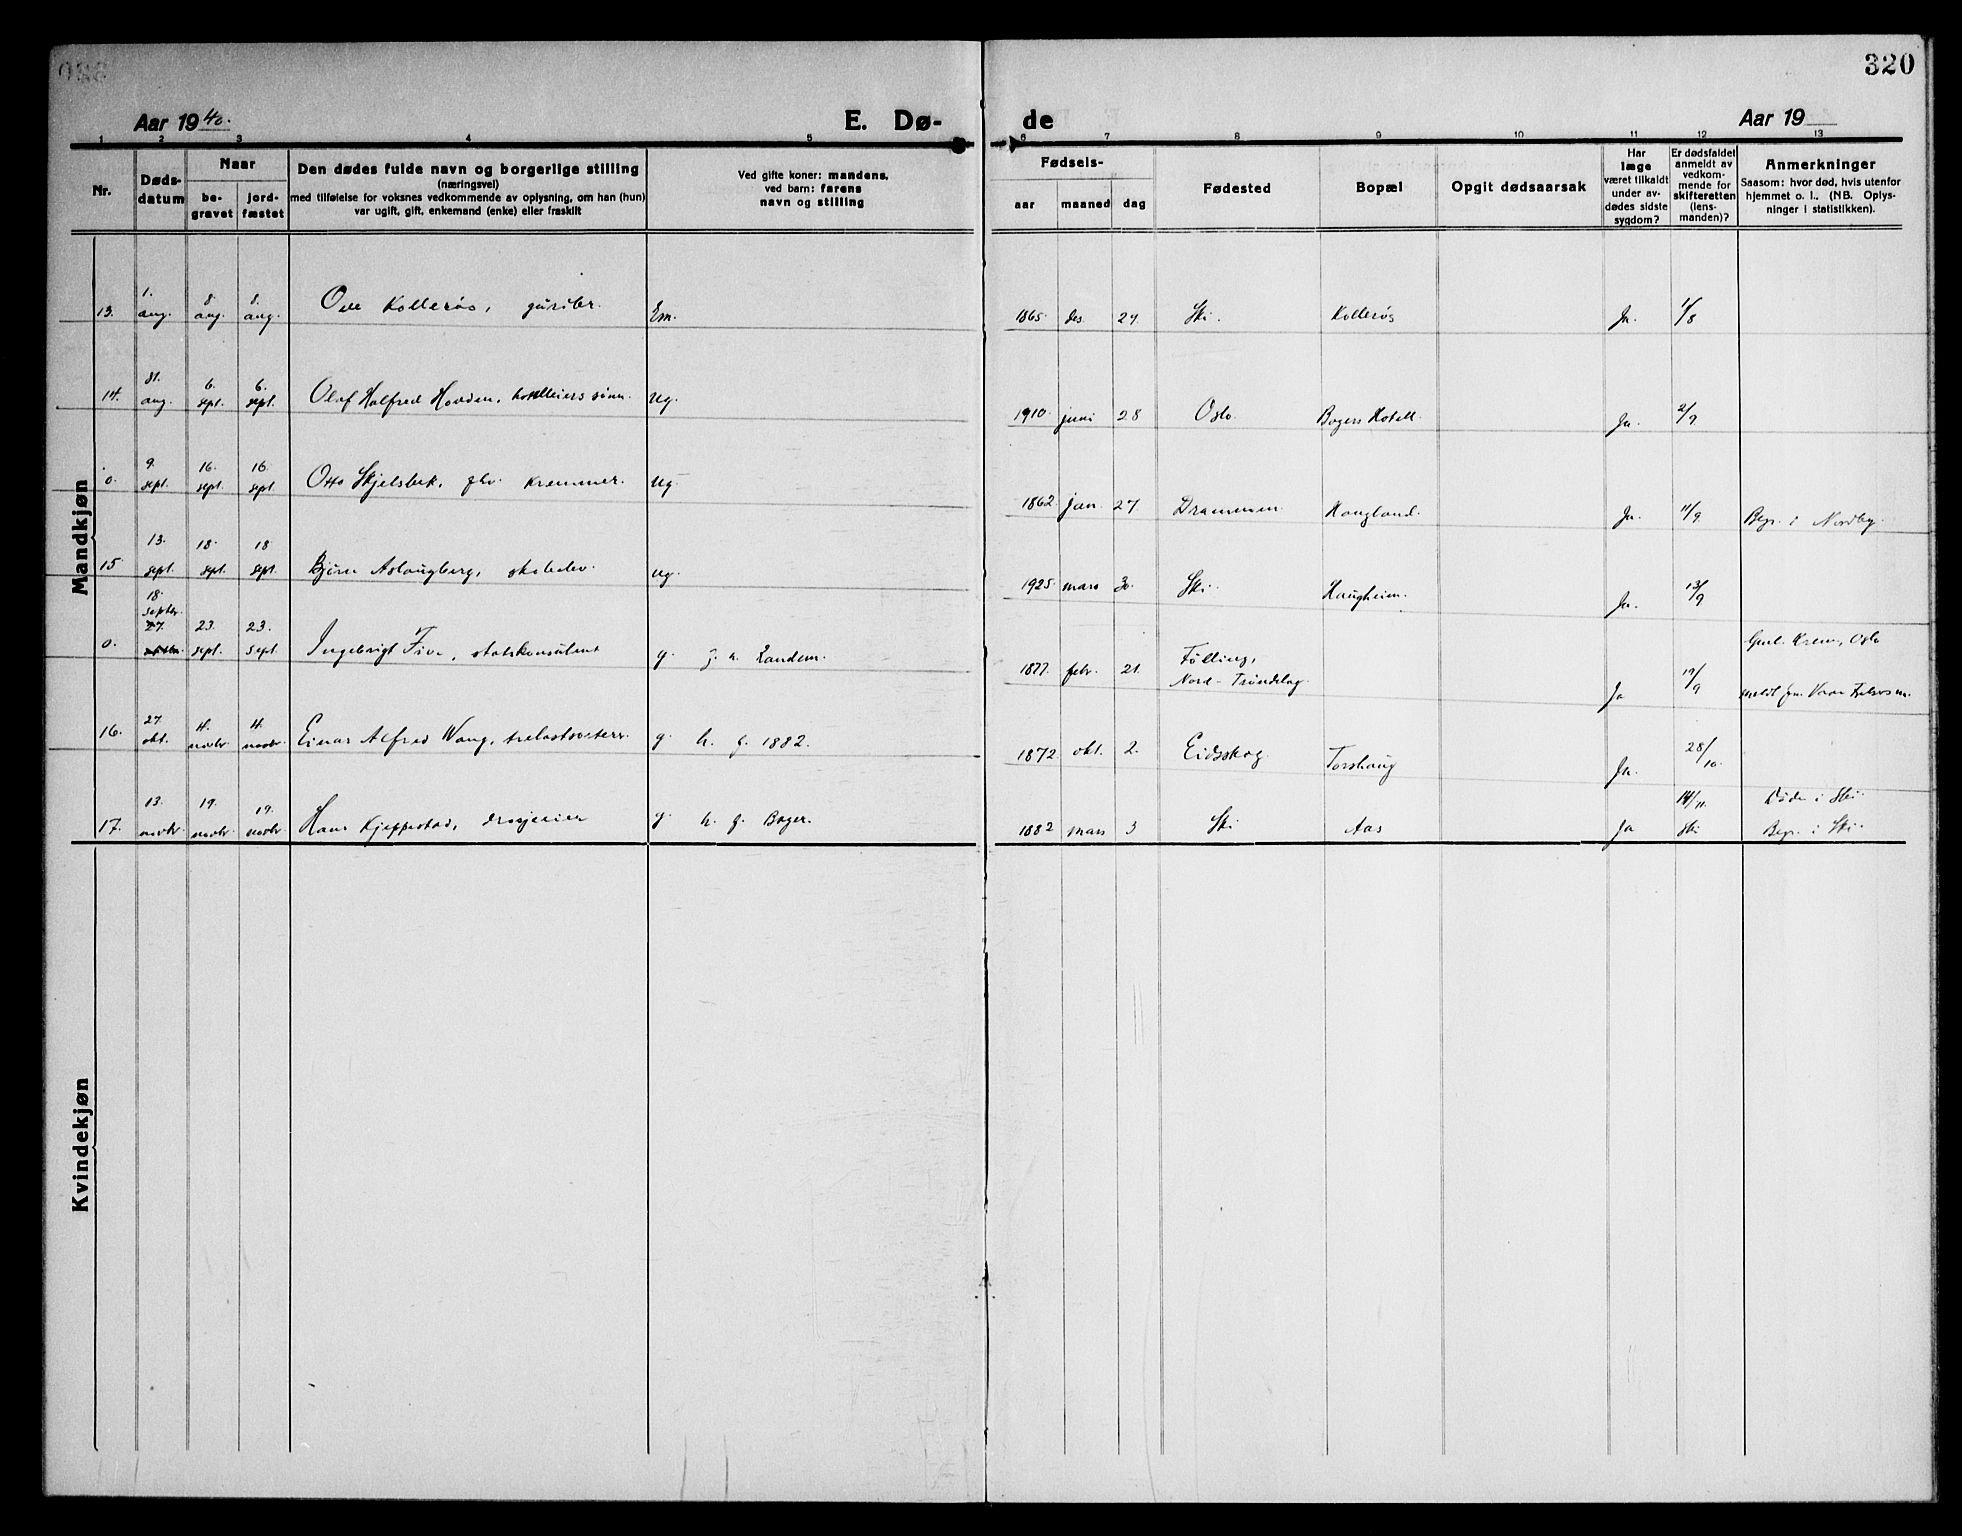 320
Aar 1940.
E. Dø-
de
Aar 19
1 2 3 4 5 6 7 8 9 10 11 12 13
Nr.
Døds-
datum
Naar
be-
gravet
jord-
fæstet
Den dødes fulde navn og borgerlige stilling
(næringsvei)
med tilføielse for voksnes vedkommende av oplysning, om han (hun)
var ugift, gift, enkemand (enke) eller fraskilt
Ved gifte koner: mandens,
ved barn: farens
navn og stilling
Fødsels-
aar maaned dag
Fødested
Bopæl
Opgit dødsaarsak
Har
læge
været tilkaldt
under av-
dødes sidste
sygdom?
Er dødsfaldet
anmeldt av
vedkom-
mende for
skifteretten
(lens-
manden)?
Anmerkninger
Saasom: hvor død, hvis utenfor
hjemmet o. l., (NB. Oplys-
ninger i statistikken).
Mandkjøn
13. 1. aug. 8. aug. 8. aug. Ole Kollerøs, gårdbr. Em. 1865. des. 27. Ski. Kollerøs Ja. 1/8
14. 31. aug. 6. sept. 6. sept. Olaf Halfred Hovden, hotelleiers sønn. ug. 1910. juni 28 Oslo. Bøgers Hotell. Ja. 2/9
0. 9. sept. 16. sept. 16. sept. Otto Skjelsbek, glv. kremmer. ug. 1862. jan. 27. Drammen. Haugland. Ja. 11/9 Begr. i Nordby.
15 13. sept. 18. sept. 18 sept. Bjørn Aslaugberg, skoleelev. ug. 1925. mars 30. Ski. Haugheim. Ja. 13/9
0. 18. septbr. 23. sept. 23. sept. Ingebrigt Five, statskonsulent g. f. u. Landem. 1877. febr. 21. Følling,
Nord-Trøndelag. Ja 19/9 Krem., Oslo
meldt fra Vår Frelsers m.
16. 27. okt. 4. novbr. 4. novbr. Einar Alfred Wang, trelastsorterer. g. h. f. 1882. 1872. okt. 2. Eidsskog. Torshaug Ja. 28/10.
17. 13. novbr. 19. novbr. 19. novbr. Hans Kjeppestad, drosjeeier g. h. f. Bøger. 1882 mars 3 Ski Aas Ja 14/11. Ski Døde i Ski.
Begr. i Ski.
Kvindekjøn